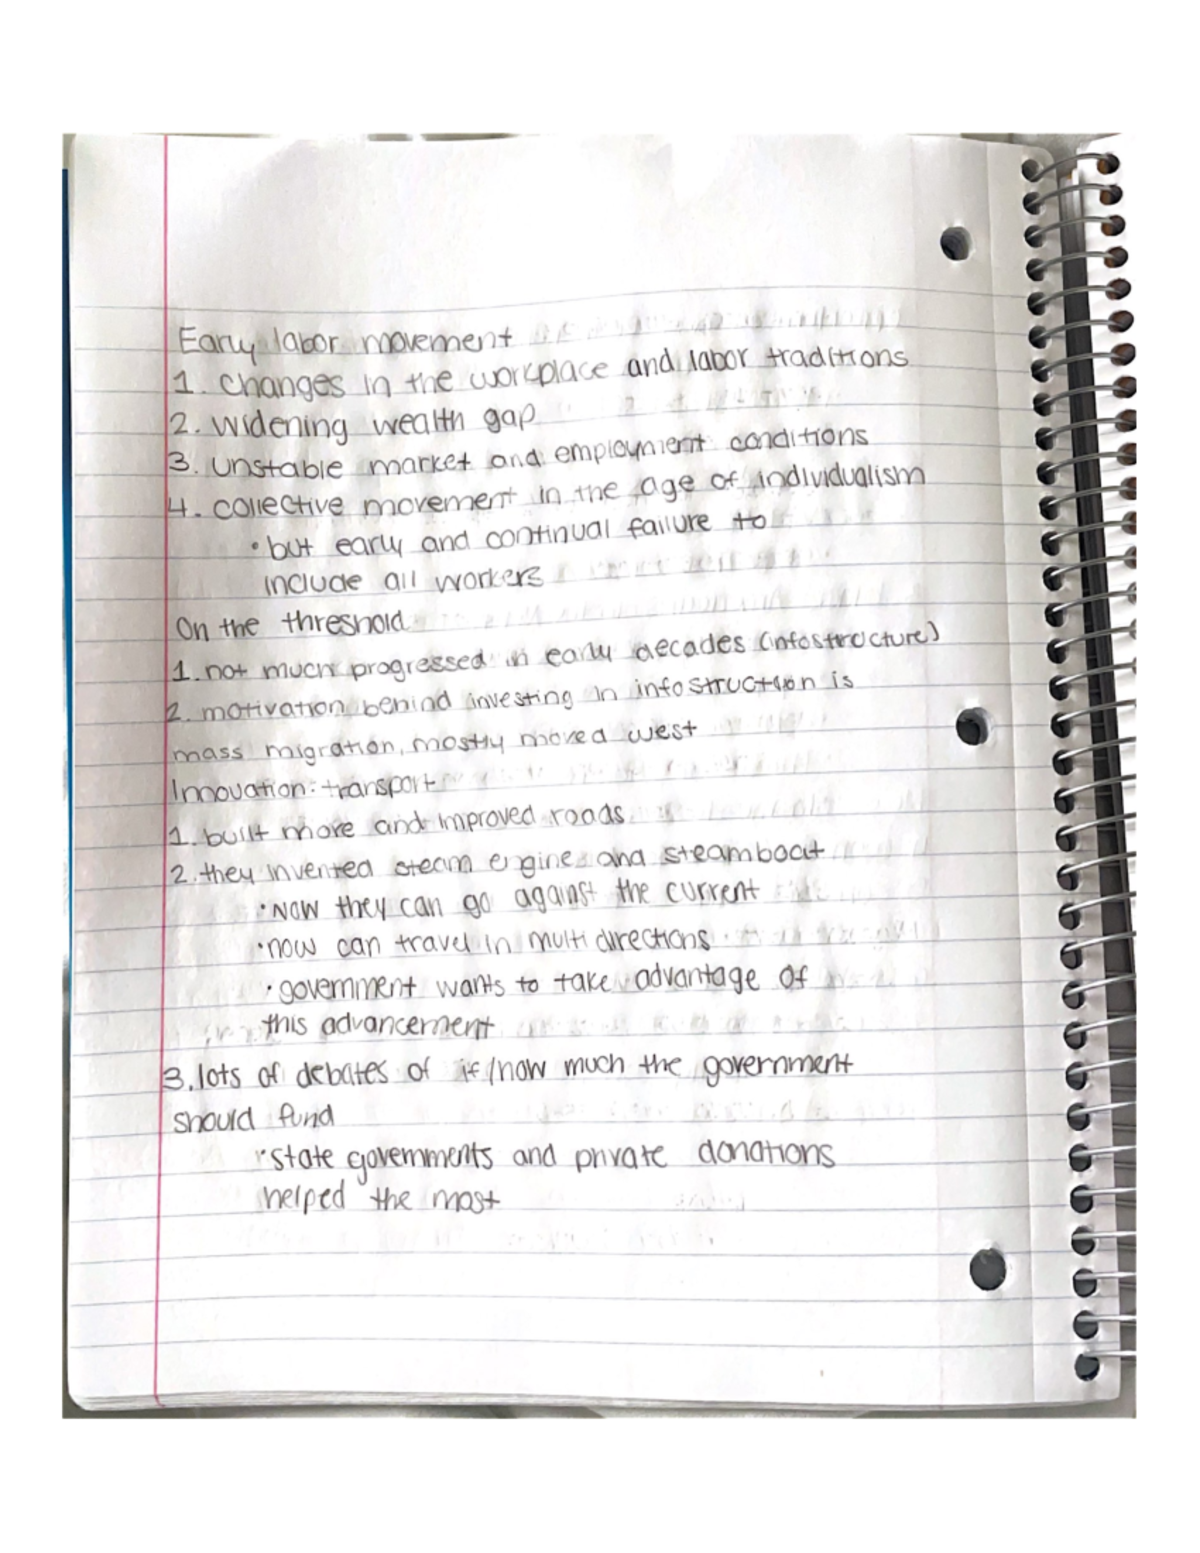 Early labor movement
1. Changes in the workplace and labor traditions
2. widening wealth gap
3. unstable market and employment conditions
4. collective movement in the age of individualism
• but early and continual failure to
include all workers
On the threshold
1. not much progressed in early decades (infostructure)
2. motivation behind investing in infostruction is
mass migration, mostly moved west
Innovation: transport
1. built more and improved roads
2. they invented steam engine and steamboat
• Now they can go against the current
• now can travel in multi directions
• government wants to take advantage of
this advancement
3. lots of debates of if/how much the government
should fund
• state governments and private donations
helped the most